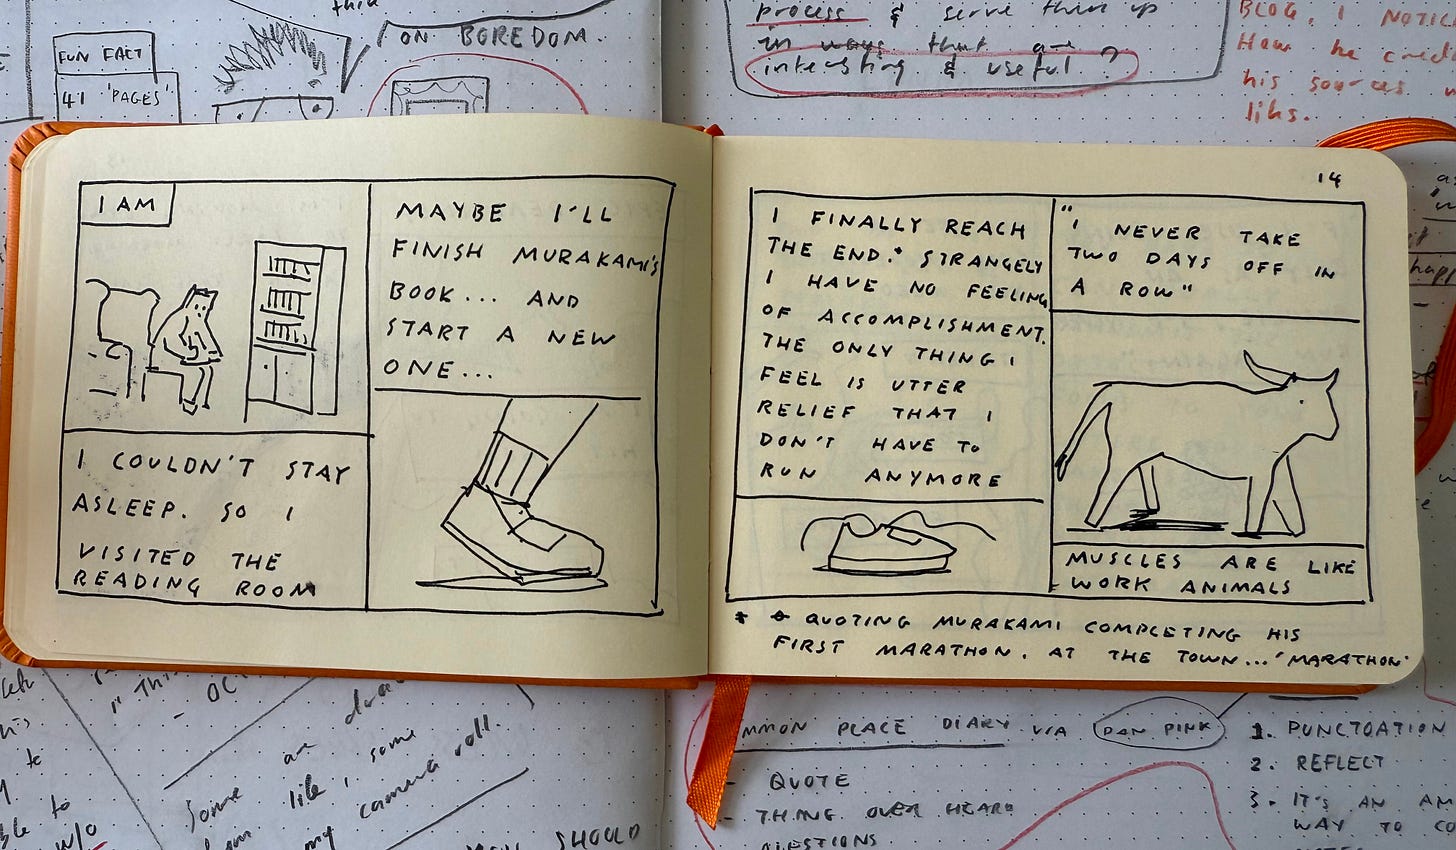 this
ON BOREDOM.
FUN FACT
41 'PAGES'
process & serve them up
in ways that are
interesting & useful ?
BLOG, I NOTIC
How he cred
his sources w
links.
I AM
I COULDN'T STAY
ASLEEP. SO I
VISITED THE
READING ROOM
MAYBE I'LL
FINISH MURAKAMI'S
BOOK... AND
START A NEW
ONE...
14
I FINALLY REACH
THE END.* STRANGELY
I HAVE NO FEELING
OF ACCOMPLISHMENT.
THE ONLY THING I
FEEL IS UTTER
RELIEF THAT I
DON'T HAVE TO
RUN ANYMORE
"I NEVER TAKE
TWO DAYS OFF IN
A ROW"
MUSCLES ARE LIKE
WORK ANIMALS
* QUOTING MURAKAMI COMPLETING HIS
FIRST MARATHON. AT THE TOWN... 'MARATHON'
"This
- OC
are
Some
like, some
my camera roll.
w/o
SHOULD
MMON PLACE DIARY VIA DAN PINK
- QUOTE
- THING OVER HEARD
QUESTIONS
1. PUNCTUATION
2. REFLECT
3. IT'S AN AM
WAY TO CO